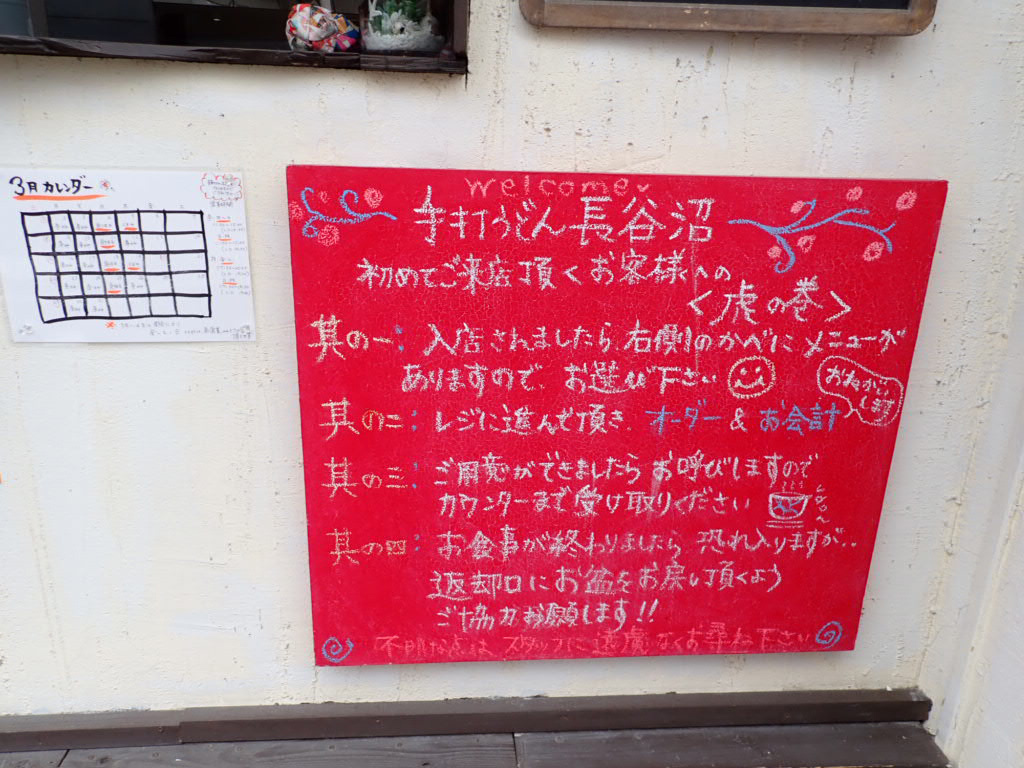 3月カレンダー
welcome
手打うどん 長谷沼
初めてご来店頂くお客様への
<虎の巻>
其の一: 入店されましたら、右側のかべに メニューが
ありますので、お選び下さい
おねがいします
其の二: レジに進んで頂き、オーダー & お会計
其の三: ご用意ができましたら お呼びしますので
カウンターまで 受け取りください
其の四: お食事が終わりましたら 恐れ入りますが..
返却口に お盆をお戻し頂くよう
ご協力お願します!!
不明な点は スタッフに遠慮なくお尋ね下さい